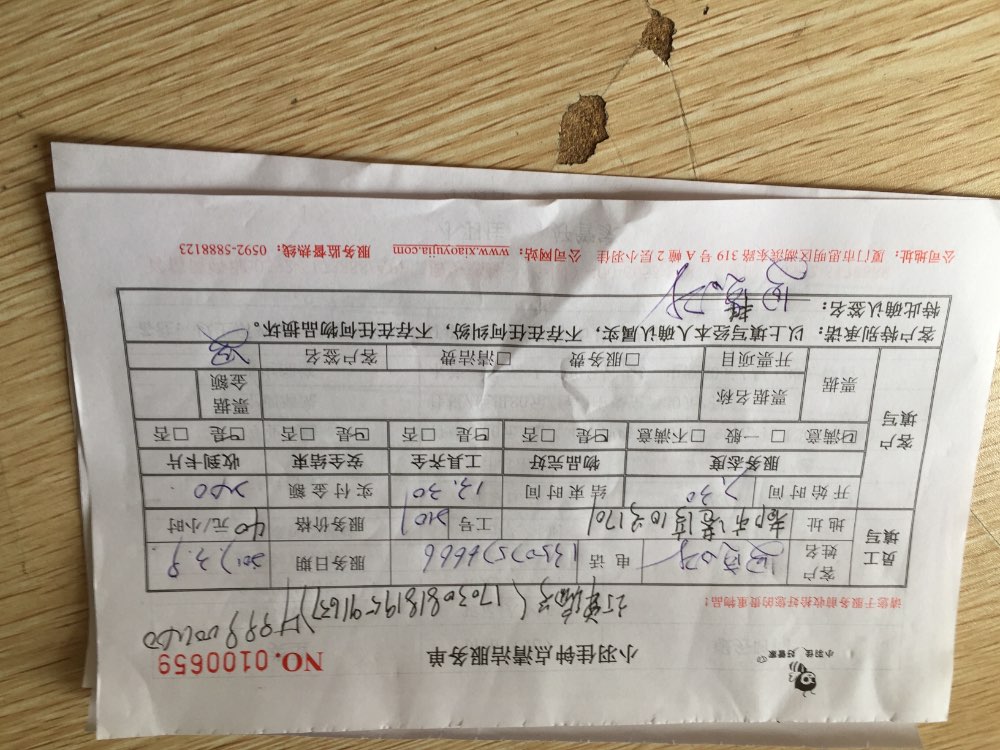 小羽佳 好管家
小羽佳钟点清洁服务单
NO.0100659
请您于服务前收拾好您的贵重物品!
员工填写
客户姓名
电话
服务日期
2017.3.9
地址
工号
210
服务价格
40 元/小时
开始时间
结束时间
12.30
实付金额
200
客户填写
服务态度 物品完好 工具齐全 安全结束 收到卡片
☑满意 □一般 □不满意 ☑是 □否 ☑是 □否 ☑是 □否 ☑是 □否
票据
票据名称
票据金额
开票项目
□服务费 □清洁费
客户签名
客户特别承诺:以上填写经本人确认属实,不存在任何纠纷,不存在任何物品损坏。
特此确认签名:
公司地址:厦门市思明区湖滨东路 319 号 A 幢 2 层小羽佳 公司网站:www.xiaoyujia.com 服务监督热线:0592-5888123